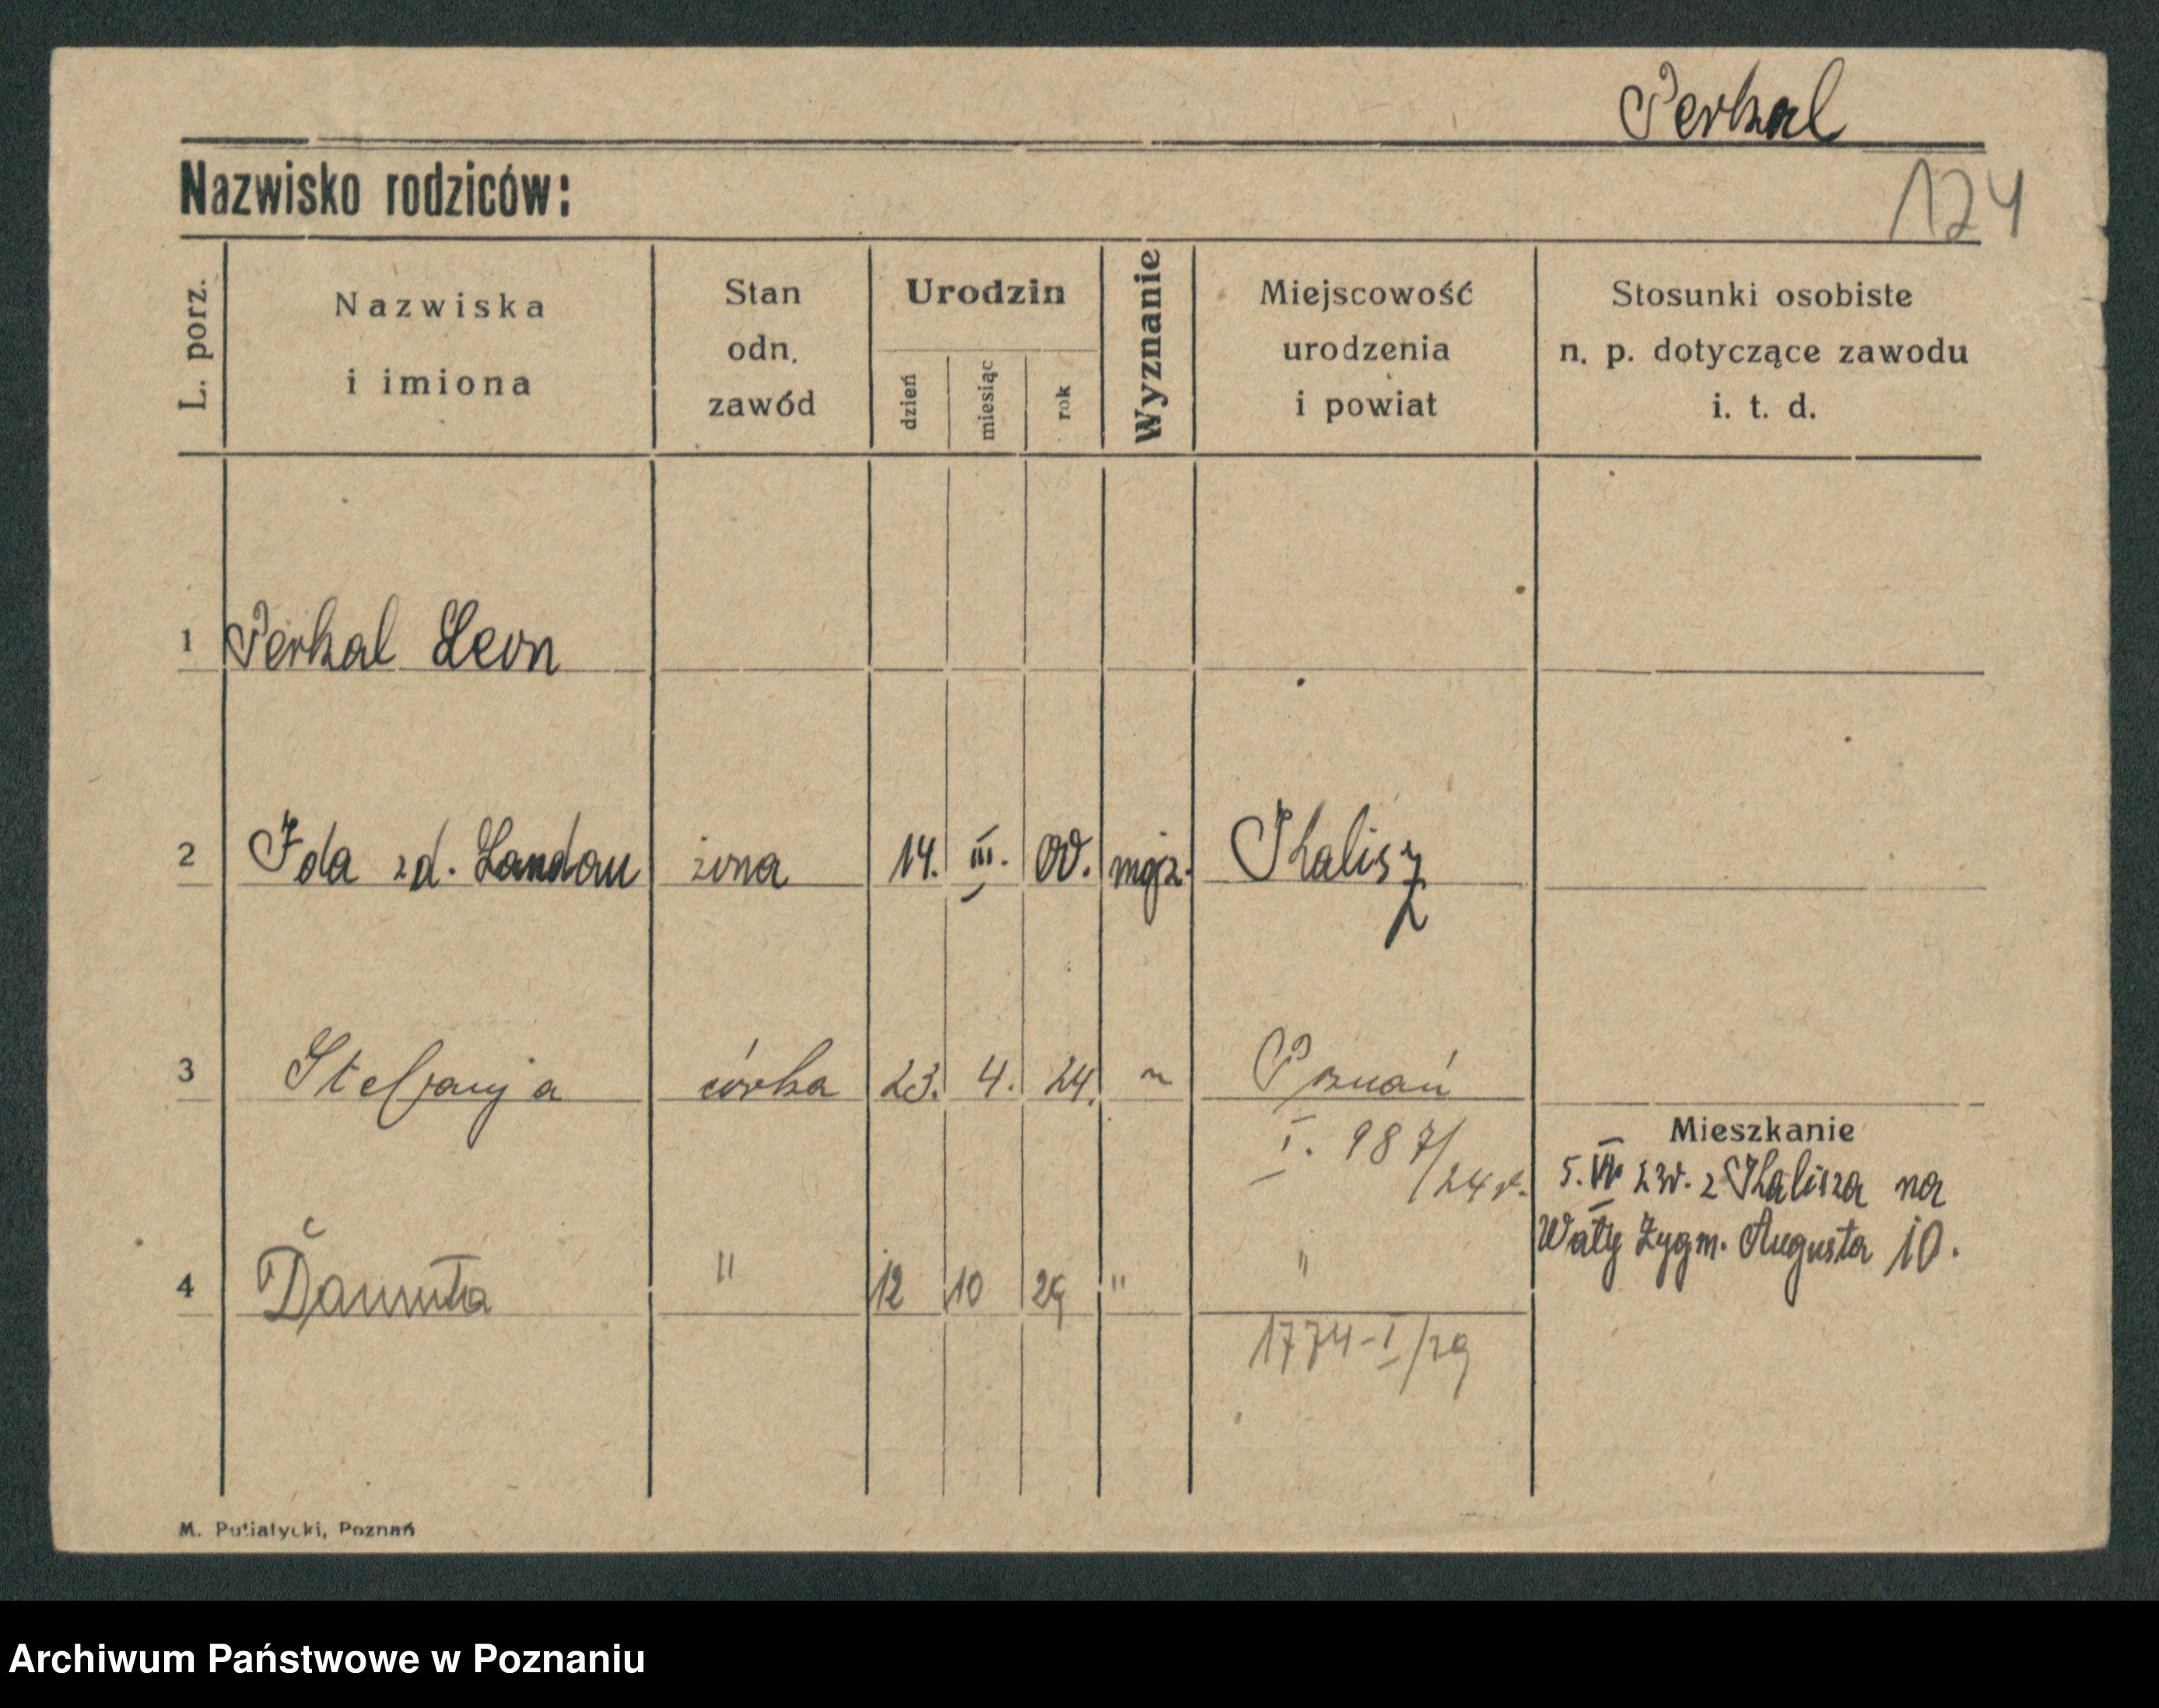 Perkal
Nazwisko rodziców:
124
L. porz.
Nazwiska
i imiona
Stan
odn.
zawód
Urodzin
dzień
miesiąc
rok
Wyznanie
Miejscowość
urodzenia
i powiat
Stosunki osobiste
n. p. dotyczące zawodu
i. t. d.
1 Perkal Leon
2 Ida zd. Landau żona 14. III. 00. mojż. Kalisz
3 Stefanja córka 23. 4. 24. " Poznań
I. 987/24 r.
Mieszkanie
5. VI 23r. z Kalisza na
Wały Zygm. Augusta 10.
4 Danuta " 12 10 29 " "
1774-I/29
M. Putiatycki, Poznań
Archiwum Państwowe w Poznaniu